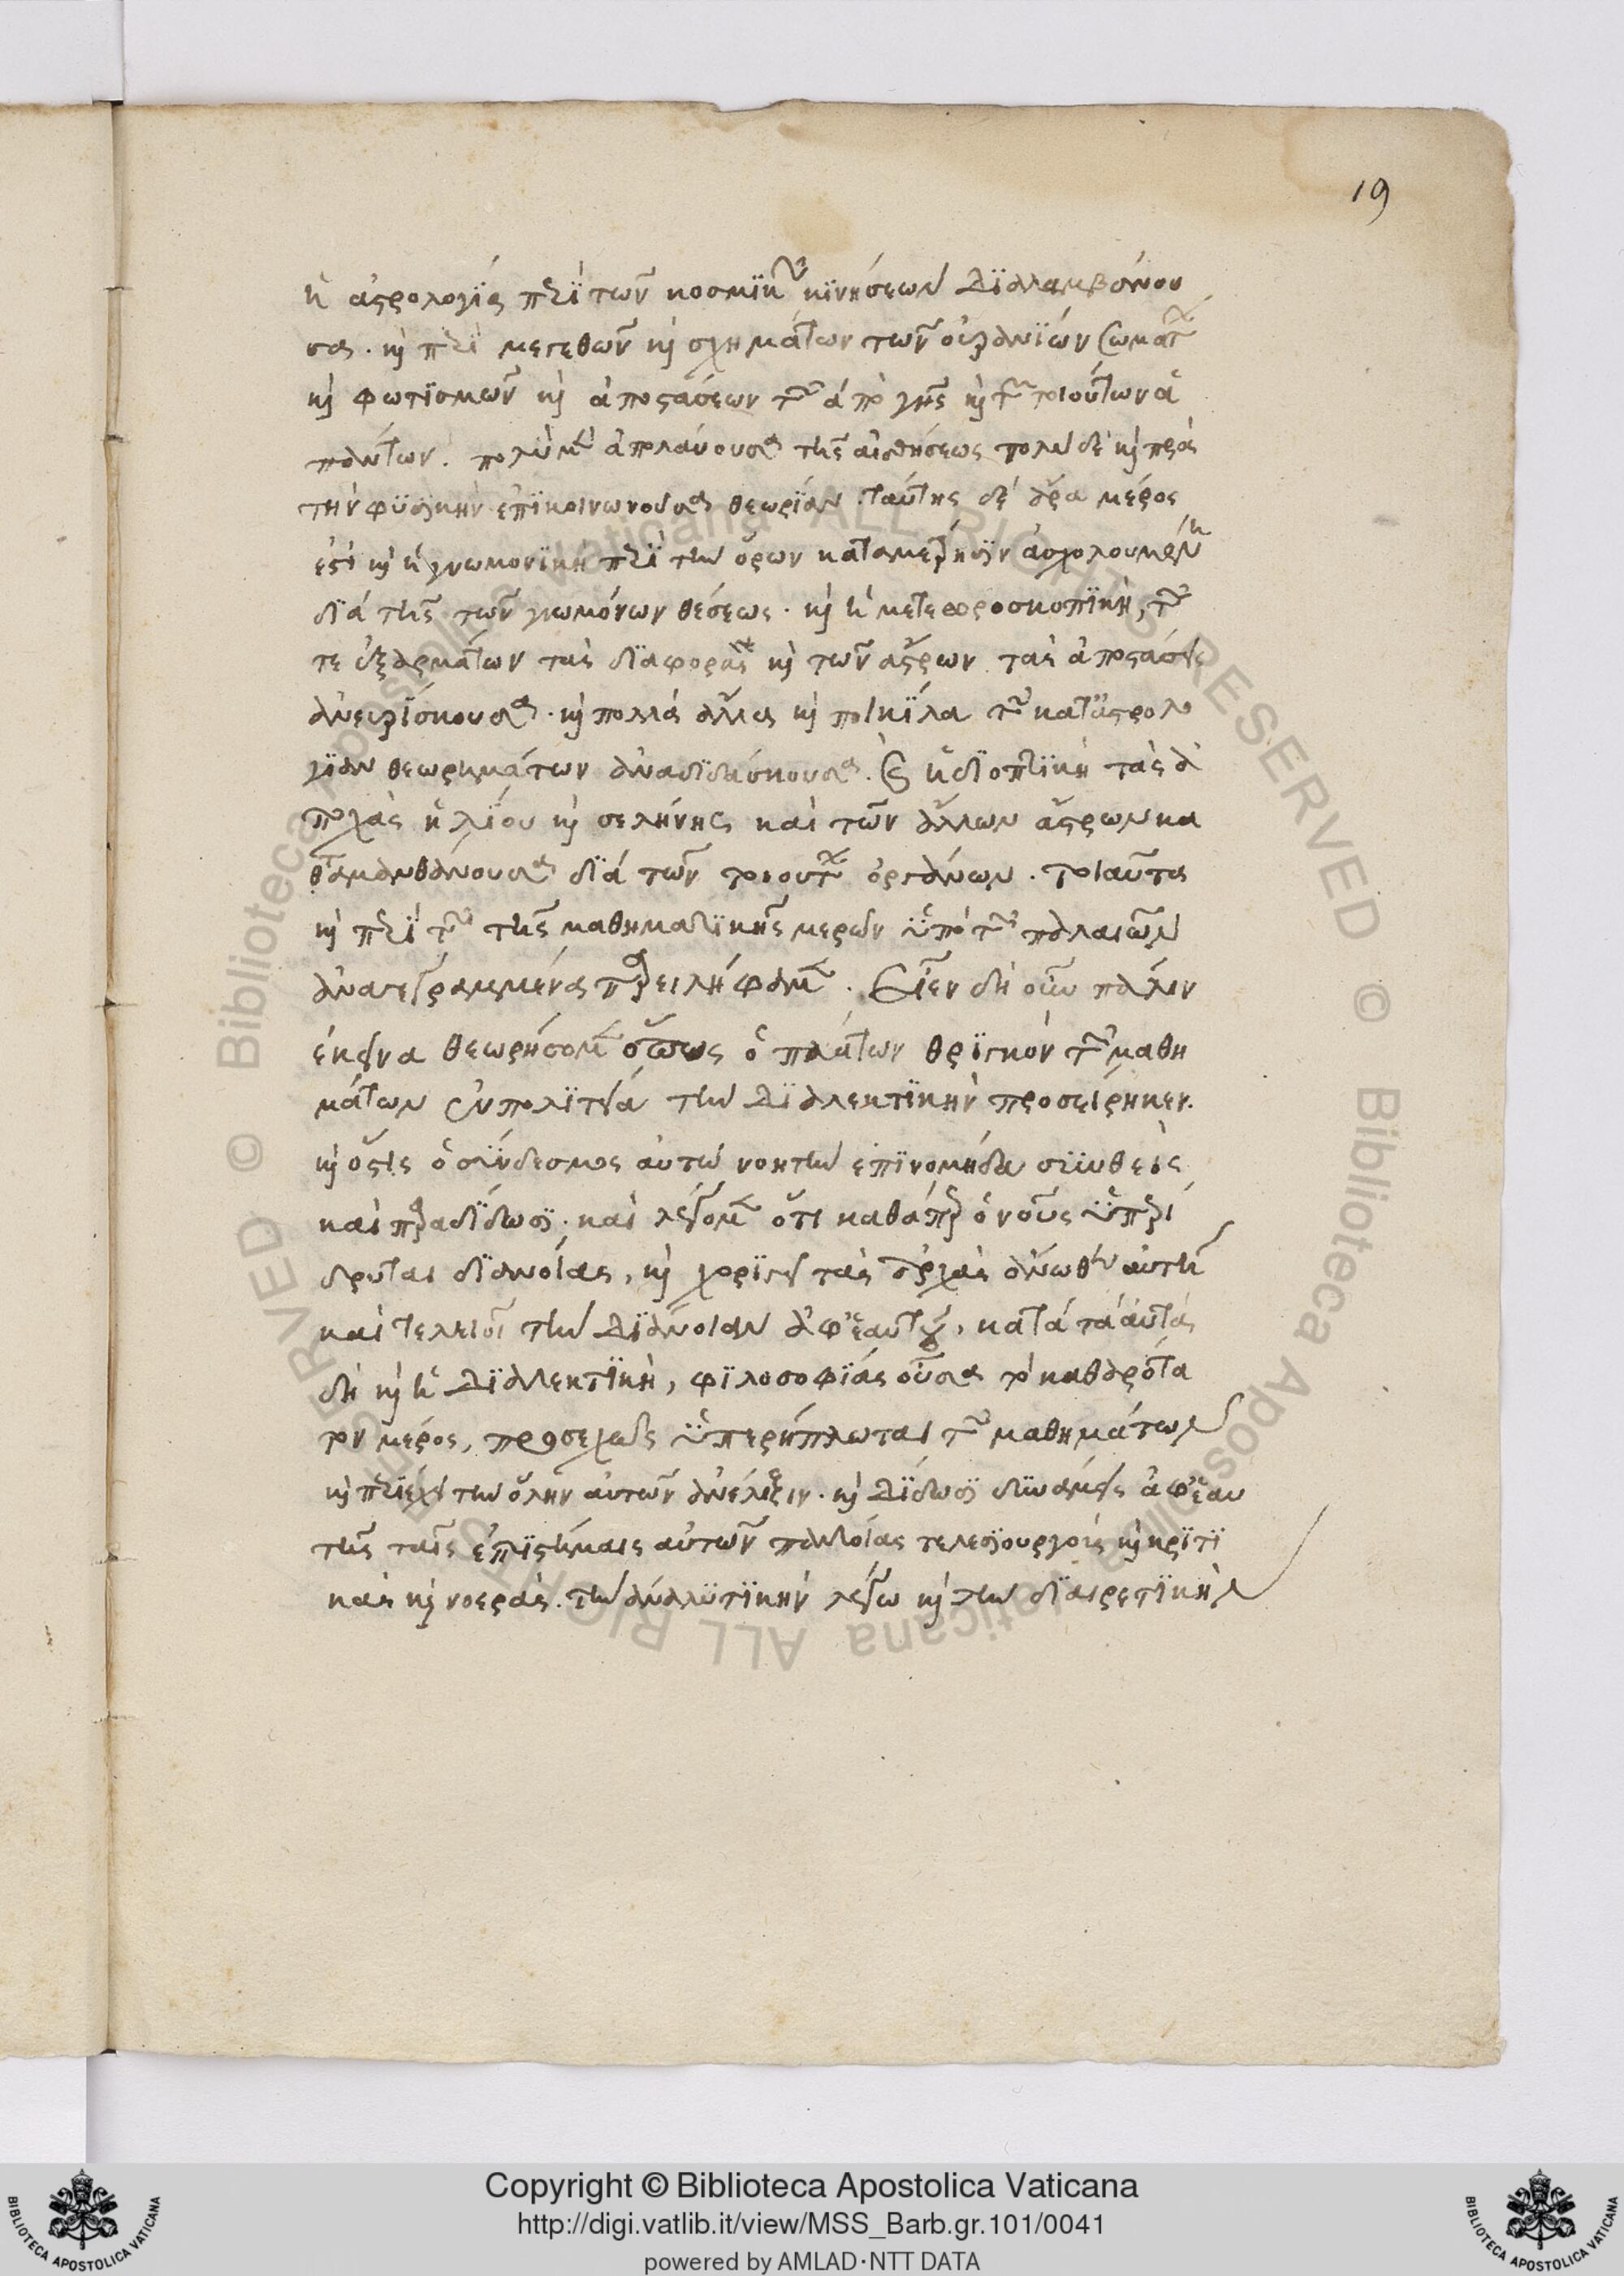 19
ἡ ἀστρολογία περὶ τῶν κοσμικῶν κινήσεων διαλαμβάνου
σα. καὶ περὶ μεγεθῶν καὶ σχημάτων τῶν οὐρανίων σωμάτων
καὶ φωτισμῶν καὶ ἀποστάσεων τῶν ἀπὸ γῆς καὶ τῶν τοιούτων ἁ
πάντων. πολὺ μὲν ἀπολαύουσα τῆς αἰσθήσεως πολὺ δὲ καὶ πρὸς
τὴν φυσικὴν ἐπικοινωνοῦσα θεωρίαν. ταύτης δὲ ἄρα μέρος
ἐστὶ καὶ ἡ γνωμονικὴ περὶ τὴν ὁρῶν καταμέτρησιν ἀσχολουμένη
διὰ τῆς τῶν γνωμόνων θέσεως. καὶ ἡ μετεωροσκοπικὴ, τῶν
τε ἐξαρμάτων τὰς διαφορὰς καὶ τῶν ἄστρων τὰς ἀποστάσεις
ἀνευρίσκουσα. καὶ πολλὰ ἄλλα καὶ ποικίλα τῶν κατ' ἀστρολο
γίαν θεωρημάτων ἀναδιδάσκουσα. καὶ ἡ διοπτικὴ τὰς ἀ
ποχὰς ἡλίου καὶ σελήνης καὶ τῶν ἄλλων ἄστρων κα
ταμανθάνουσα διὰ τῶν τοιούτων ὀργάνων. τοιαῦτα
καὶ περὶ τῶν τῆς μαθηματικῆς μερῶν ὑπὸ τῶν παλαιῶν
ἀναγεγραμμένα παρειλήφαμεν. Εἶεν δὴ οὖν πάλιν
ἐκεῖνα θεωρήσομεν ὅπως ὁ πλάτων θριγκὸν τῶν μαθη
μάτων ἐν πολιτείᾳ τὴν διαλεκτικὴν προσείρηκεν.
καὶ ὅστις ὁ σύνδεσμος αὐτῶν ὃν τὴν ἐπινομήδα συνθεὶς
καὶ παραδίδωσι. καὶ λέγομεν ὅτι καθάπερ ὁ νοῦς ὑπερί
δρυται διανοίας, καὶ χορηγεῖ τὰς ἀρχὰς ἄνωθεν αὐτῇ
καὶ τελειοῖ τὴν διάνοιαν ἀφ' ἑαυτοῦ, κατὰ τὰ αὐτὰ
δὴ καὶ ἡ διαλεκτικὴ, φιλοσοφίας οὖσα τὸ καθαρώτα
τον μέρος, προσεχῶς ὑπερήπλωται τῶν μαθημάτων
καὶ περιέχει τὴν ὅλην αὐτῶν ἀνέλιξιν. καὶ δίδωσι δυνάμεις ἀφ' ἑαυ
τῆς ταῖς ἐπιστήμαις αὐτῶν παντοίας τελεσιουργοὺς καὶ κριτι
κὰς καὶ νοεράς. τὴν ἀναλυτικὴν λέγω καὶ τὴν διαιρετικὴν
Copyright © Biblioteca Apostolica Vaticana
http://digi.vatlib.it/view/MSS_Barb.gr.101/0041
powered by AMLAD·NTT DATA